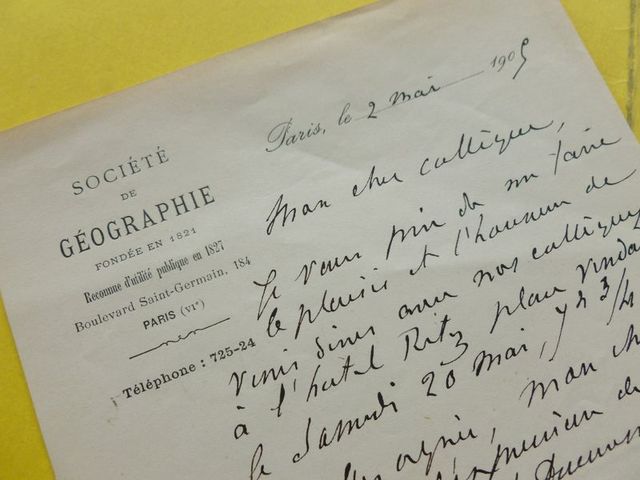 SOCIÉTÉ
DE
GÉOGRAPHIE
FONDÉE EN 1821
Reconnue d'utilité publique en 1827
Boulevard Saint-Germain, 184
PARIS (VIe)
Téléphone : 725-24
Paris, le 2 mai 1905
Mon cher collègue,
Je vous prie de me faire
le plaisir et l'honneur de
venir dîner avec nos collègues
à l'hotel Ritz place Vendo
le Samedi 20 mai, 7h 3/4
mon ch